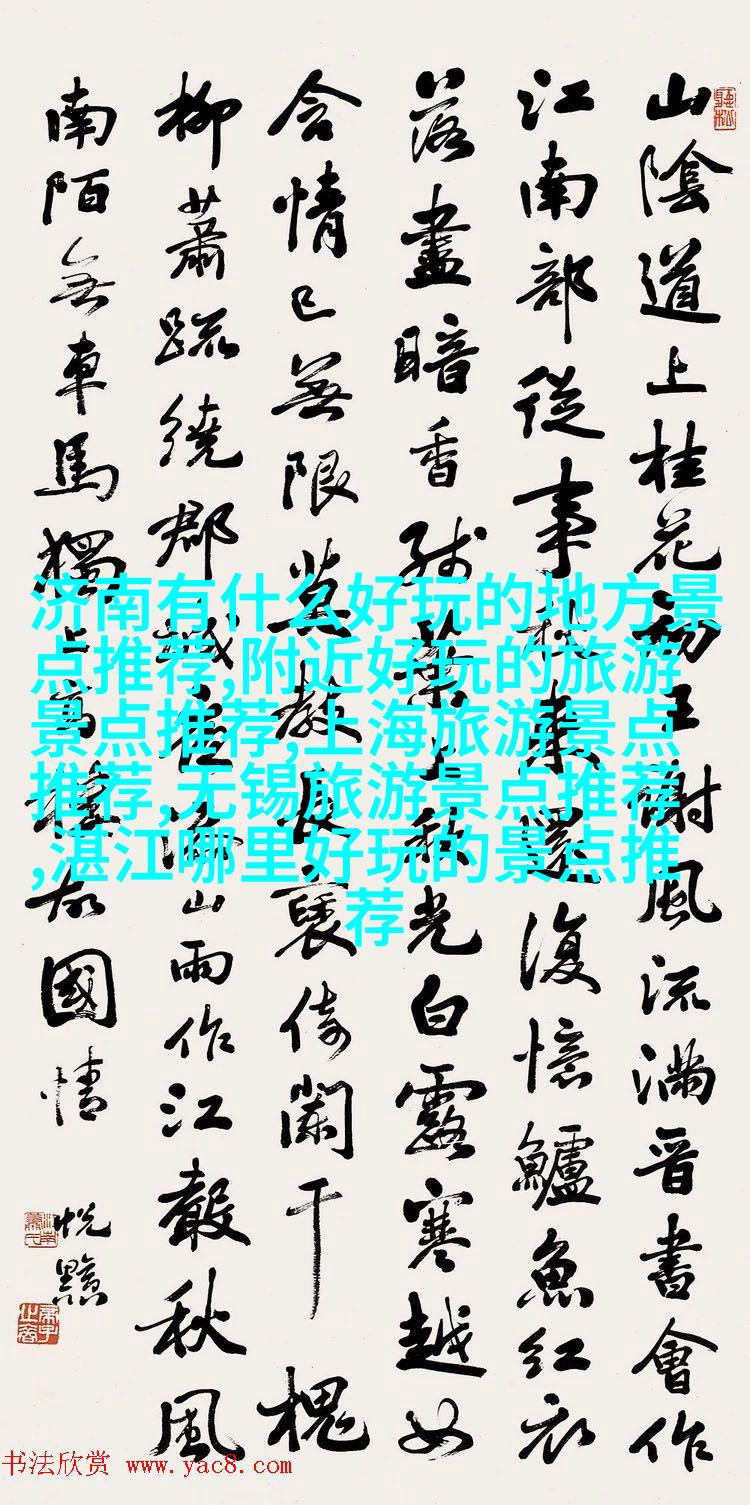 山陰道上桂花初王謝風流滿晋書會作
江南部從事秋来還復憶鱸魚紅衣
落盡暗香殘葉上秋光白露寒越女
含情已無限莫教長袖倚闌干槐
柳蕭疏繞郡城夜添山雨作江聲秋風
南陌無車馬獨上高樓故國情
济南有什么好玩的地方景
点推荐,附近好玩的旅游
景点推荐,上海旅游景点
推荐,无锡旅游景点推荐
,湛江哪里好玩的景点推
荐
书法欣赏 www.yac8.com